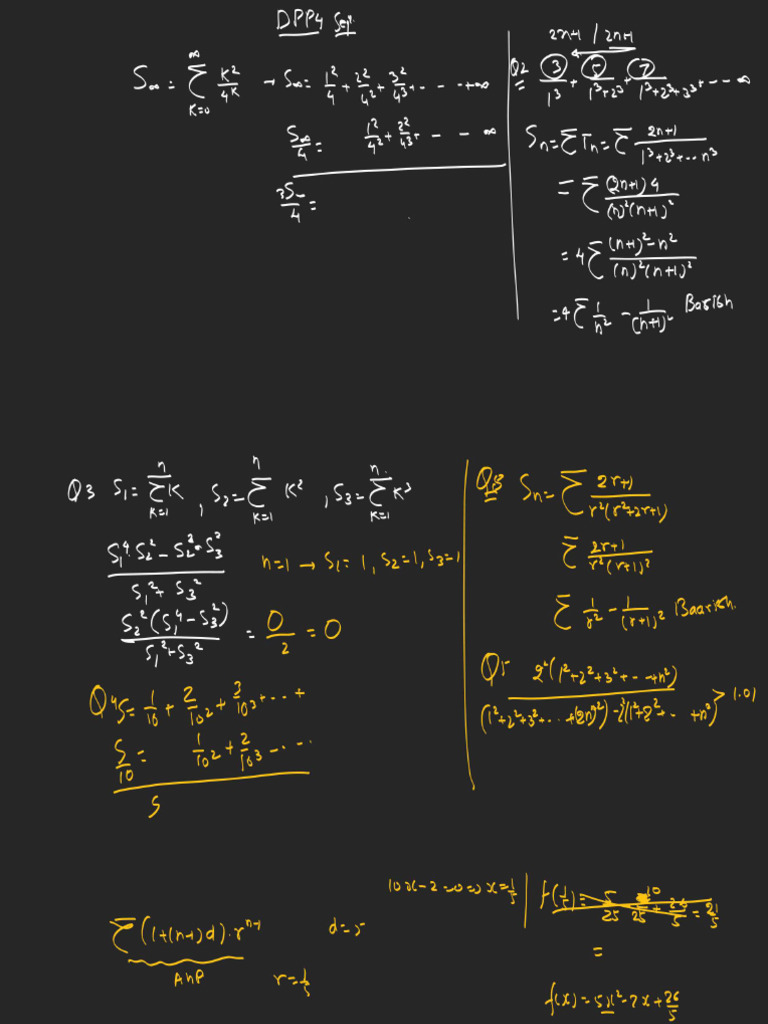 DPP4 Seq.
S∞ = ∞∑K=0 K²/4ᴷ → S∞ = 1²/4 + 2²/4² + 3²/4³ + - - - +∞
S∞/4 = 1²/4² + 2²/4³ + - - - ∞
3S∞/4 =
2n+1 / 2n+1
Q2 = 3/1³ + 5/1³+2³ + 7/1³+2³+3³ + - - - ∞
Sn = ∑Tn = ∑ 2n+1/1³+2³+--n³
= ∑ (2n+1)4/(n)²(n+1)²
= 4∑ (n+1)²-n²/(n)²(n+1)²
= 4∑ 1/n² - 1/(n+1)² Barish
Q3 S1 = n∑K=1 K , S2 = n∑K=1 K² , S3 = n∑K=1 K³
S1⁴·S2² - S2²·S3²/S1² + S3²
n=1 → S1 = 1, S2=1, S3=1
S2²(S1⁴-S3²)/S1²+S3² = 0/2 = 0
Q4 S = 1/10 + 2/10² + 3/10³ + ··· +
S/10 = 1/10² + 2/10³ - - - -
S
Sn = ∑ 2r+1/r²(r²+2r+1)
∑ 2r+1/r²(r+1)²
∑ 1/r² - 1/(r+1)² Baarish.
2²(1²+2²+3²+ - - +n²)/(1²+2²+3²+ ·· +(2n)²) - 2²(1²+2²+ - +n²) > 1.01
10x-2=0 ⇒ x=1/5
∑(1+(n-1)d)·rⁿ⁻¹ d=5
AnP r=1/5
=
f(x) = 5x²-2x+26/5